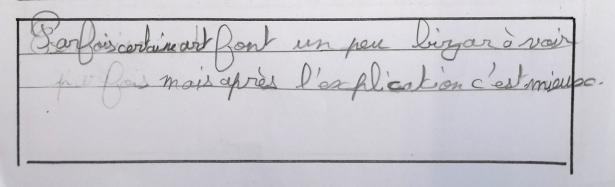 Parfois certaine art font un peu bizar à voir
parfois mais après l'explication c'est mieux.